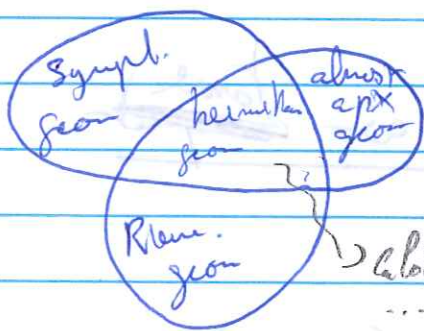 Sympl.
geom
hermitian
geom
almost
cpx
geom
Riem.
geom